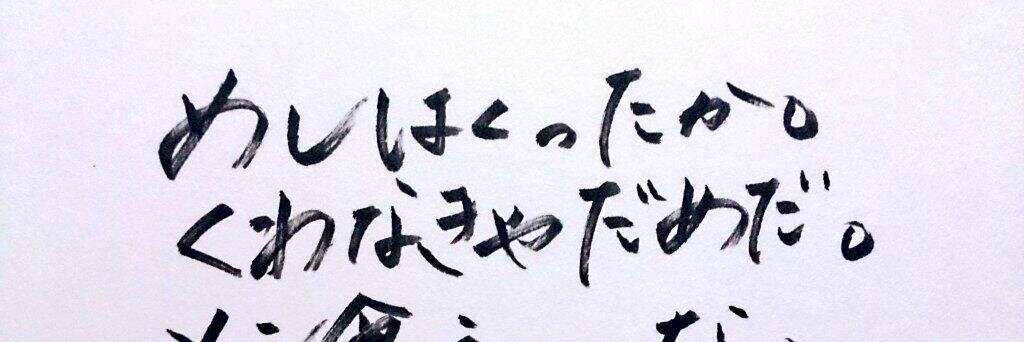 めしはくったか。
くわなきゃだめだ。